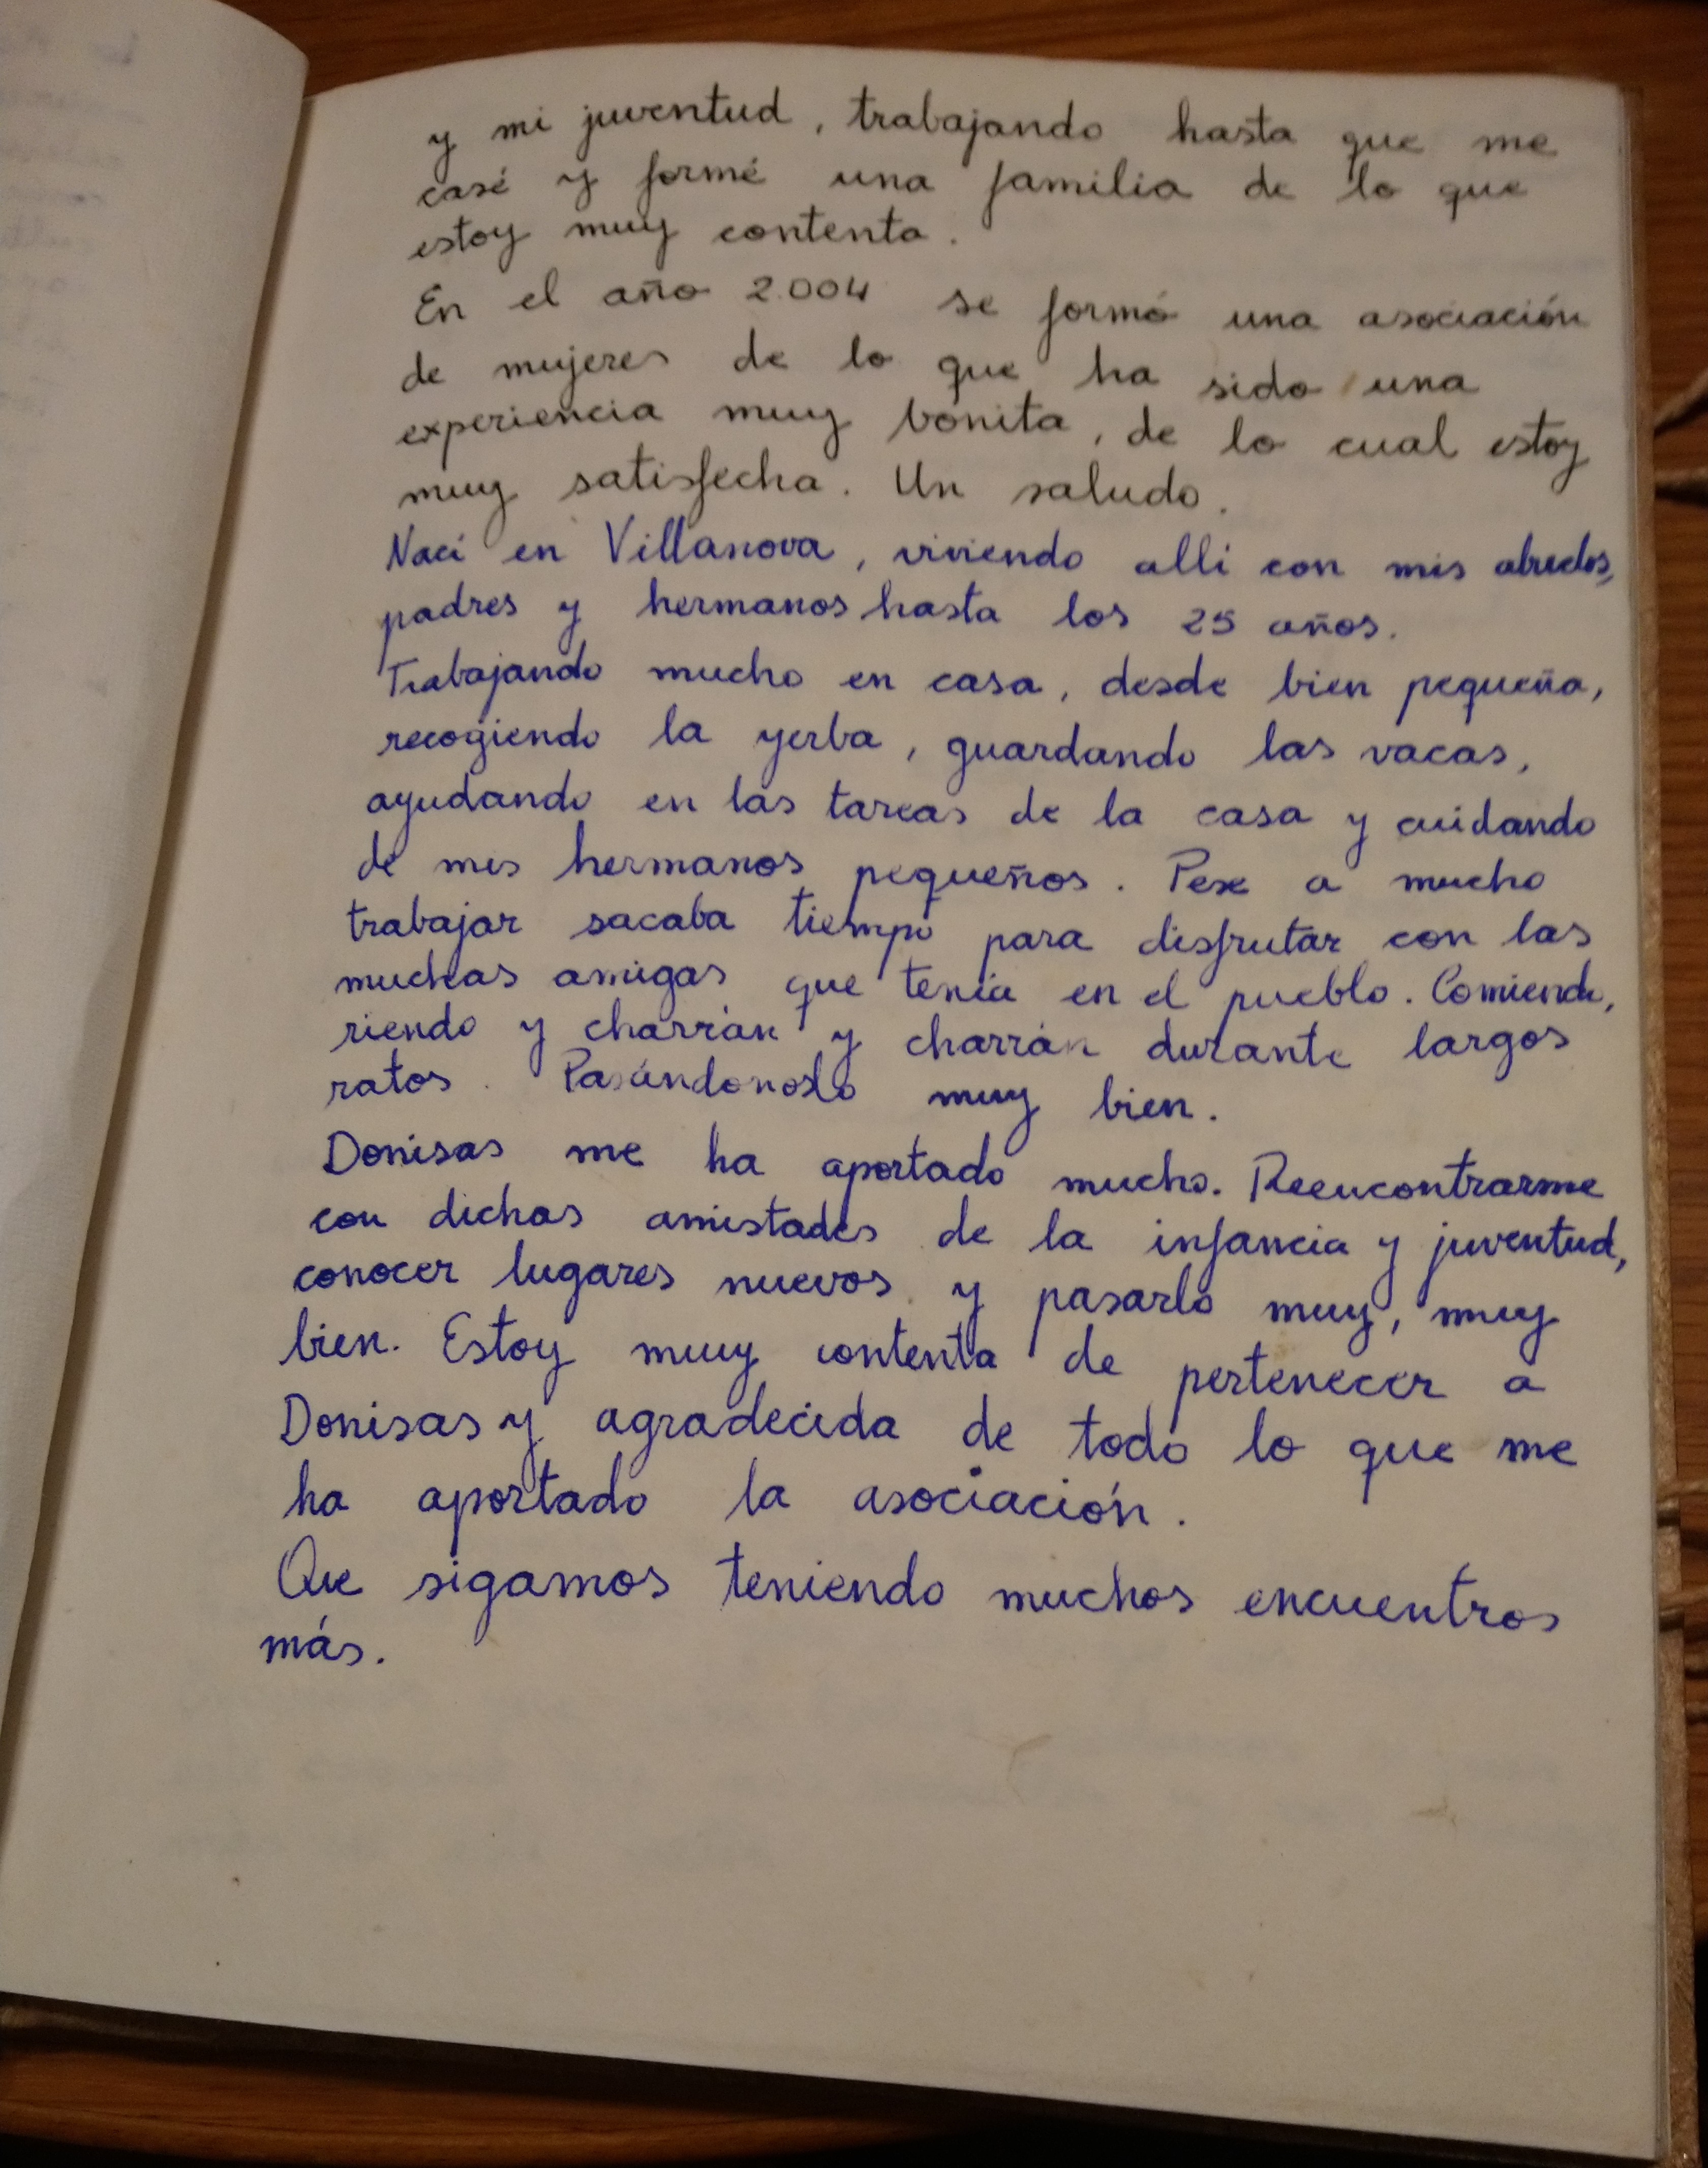 y mi juventud, trabajando hasta que me
casé y formé una familia de lo que
estoy muy contenta.
En el año 2.004 se formó una asociación
de mujeres de lo que ha sido una
experiencia muy bonita, de lo cual estoy
muy satisfecha. Un saludo.
Nací en Villanova, viviendo allí con mis abuelos,
padres y hermanos hasta los 25 años.
Trabajando mucho en casa, desde bien pequeña,
recogiendo la yerba, guardando las vacas,
ayudando en las tareas de la casa y cuidando
de mis hermanos pequeños. Pese a mucho
trabajar sacaba tiempo para disfrutar con las
muchas amigas que tenía en el pueblo. Comiendo,
riendo y charrán y charrán durante largos
ratos. Pasándonoslo muy bien.
Donisas me ha aportado mucho. Reencontrarme
con dichas amistades de la infancia y juventud,
conocer lugares nuevos y pasarlo muy, muy
bien. Estoy muy contenta de pertenecer a
Donisas y agradecida de todo lo que me
ha aportado la asociación.
Que sigamos teniendo muchos encuentros
más.